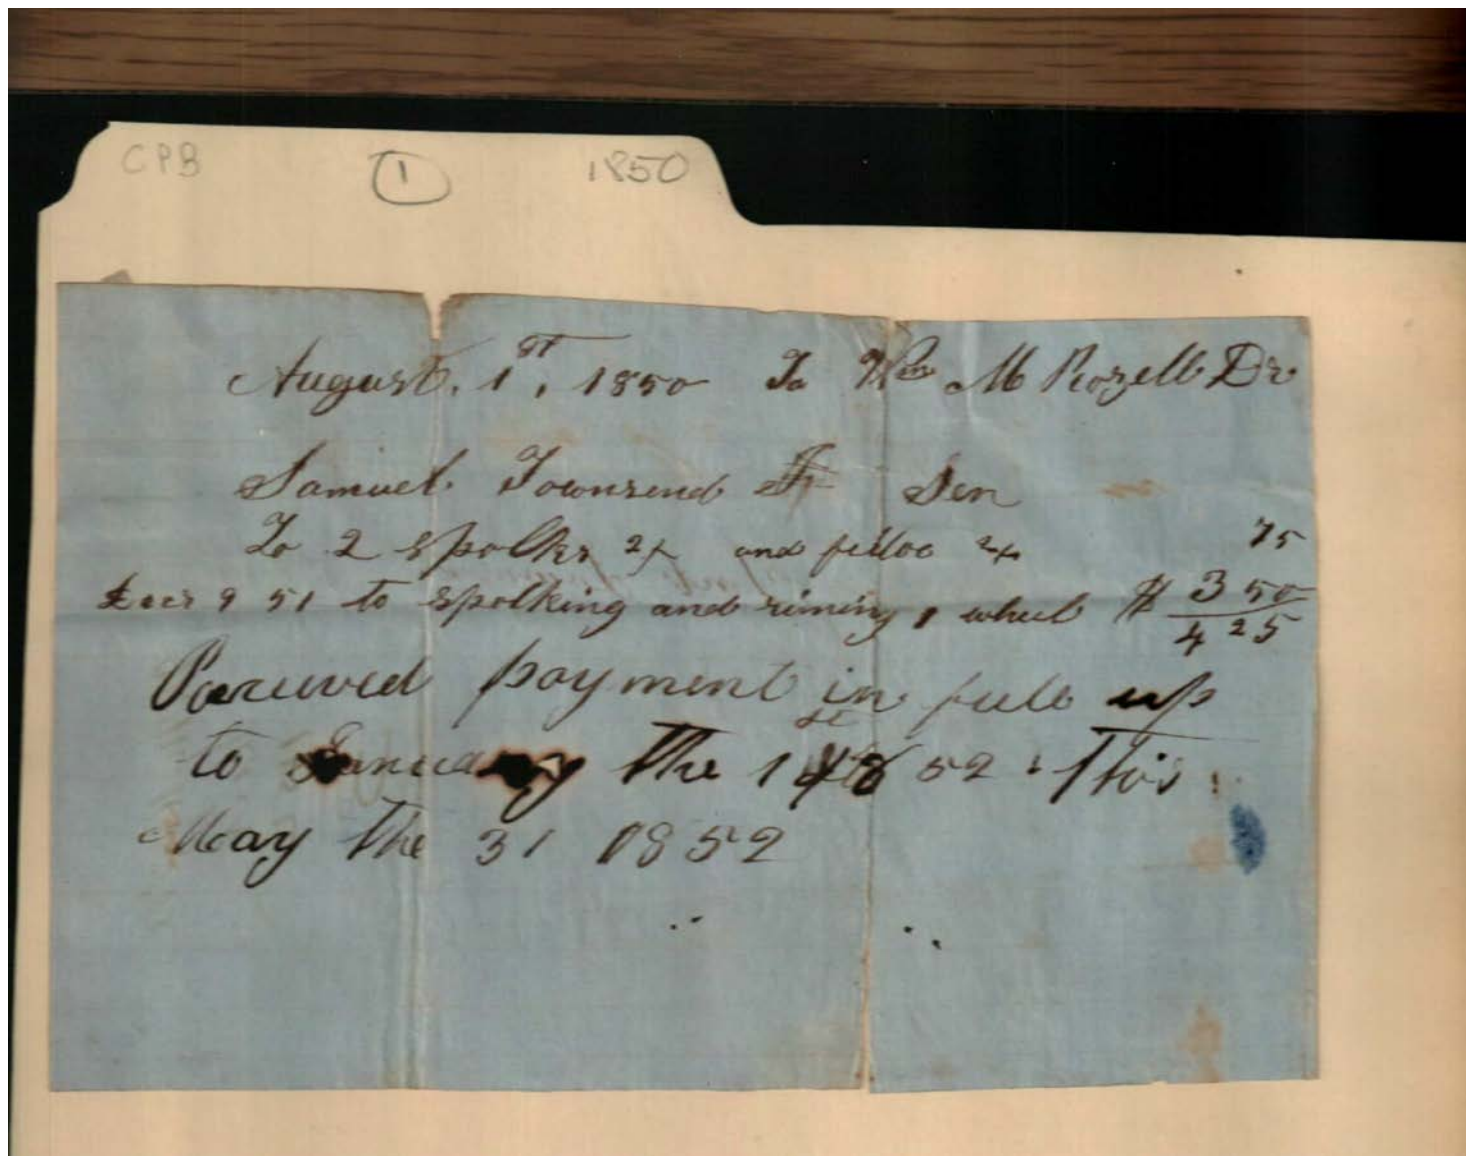 CPB 1 1850
August, 1st, 1850 To Wm M Rozell Dr
Samuel Townsend Sen
To 2 spolks 2/ and felloo 2/ 75
Decr 9 51 to spolking and riming 1 wheel $ 3 50
4 25
Receivd payment in full up
to January the 1st 1852 This
May the 31 1852